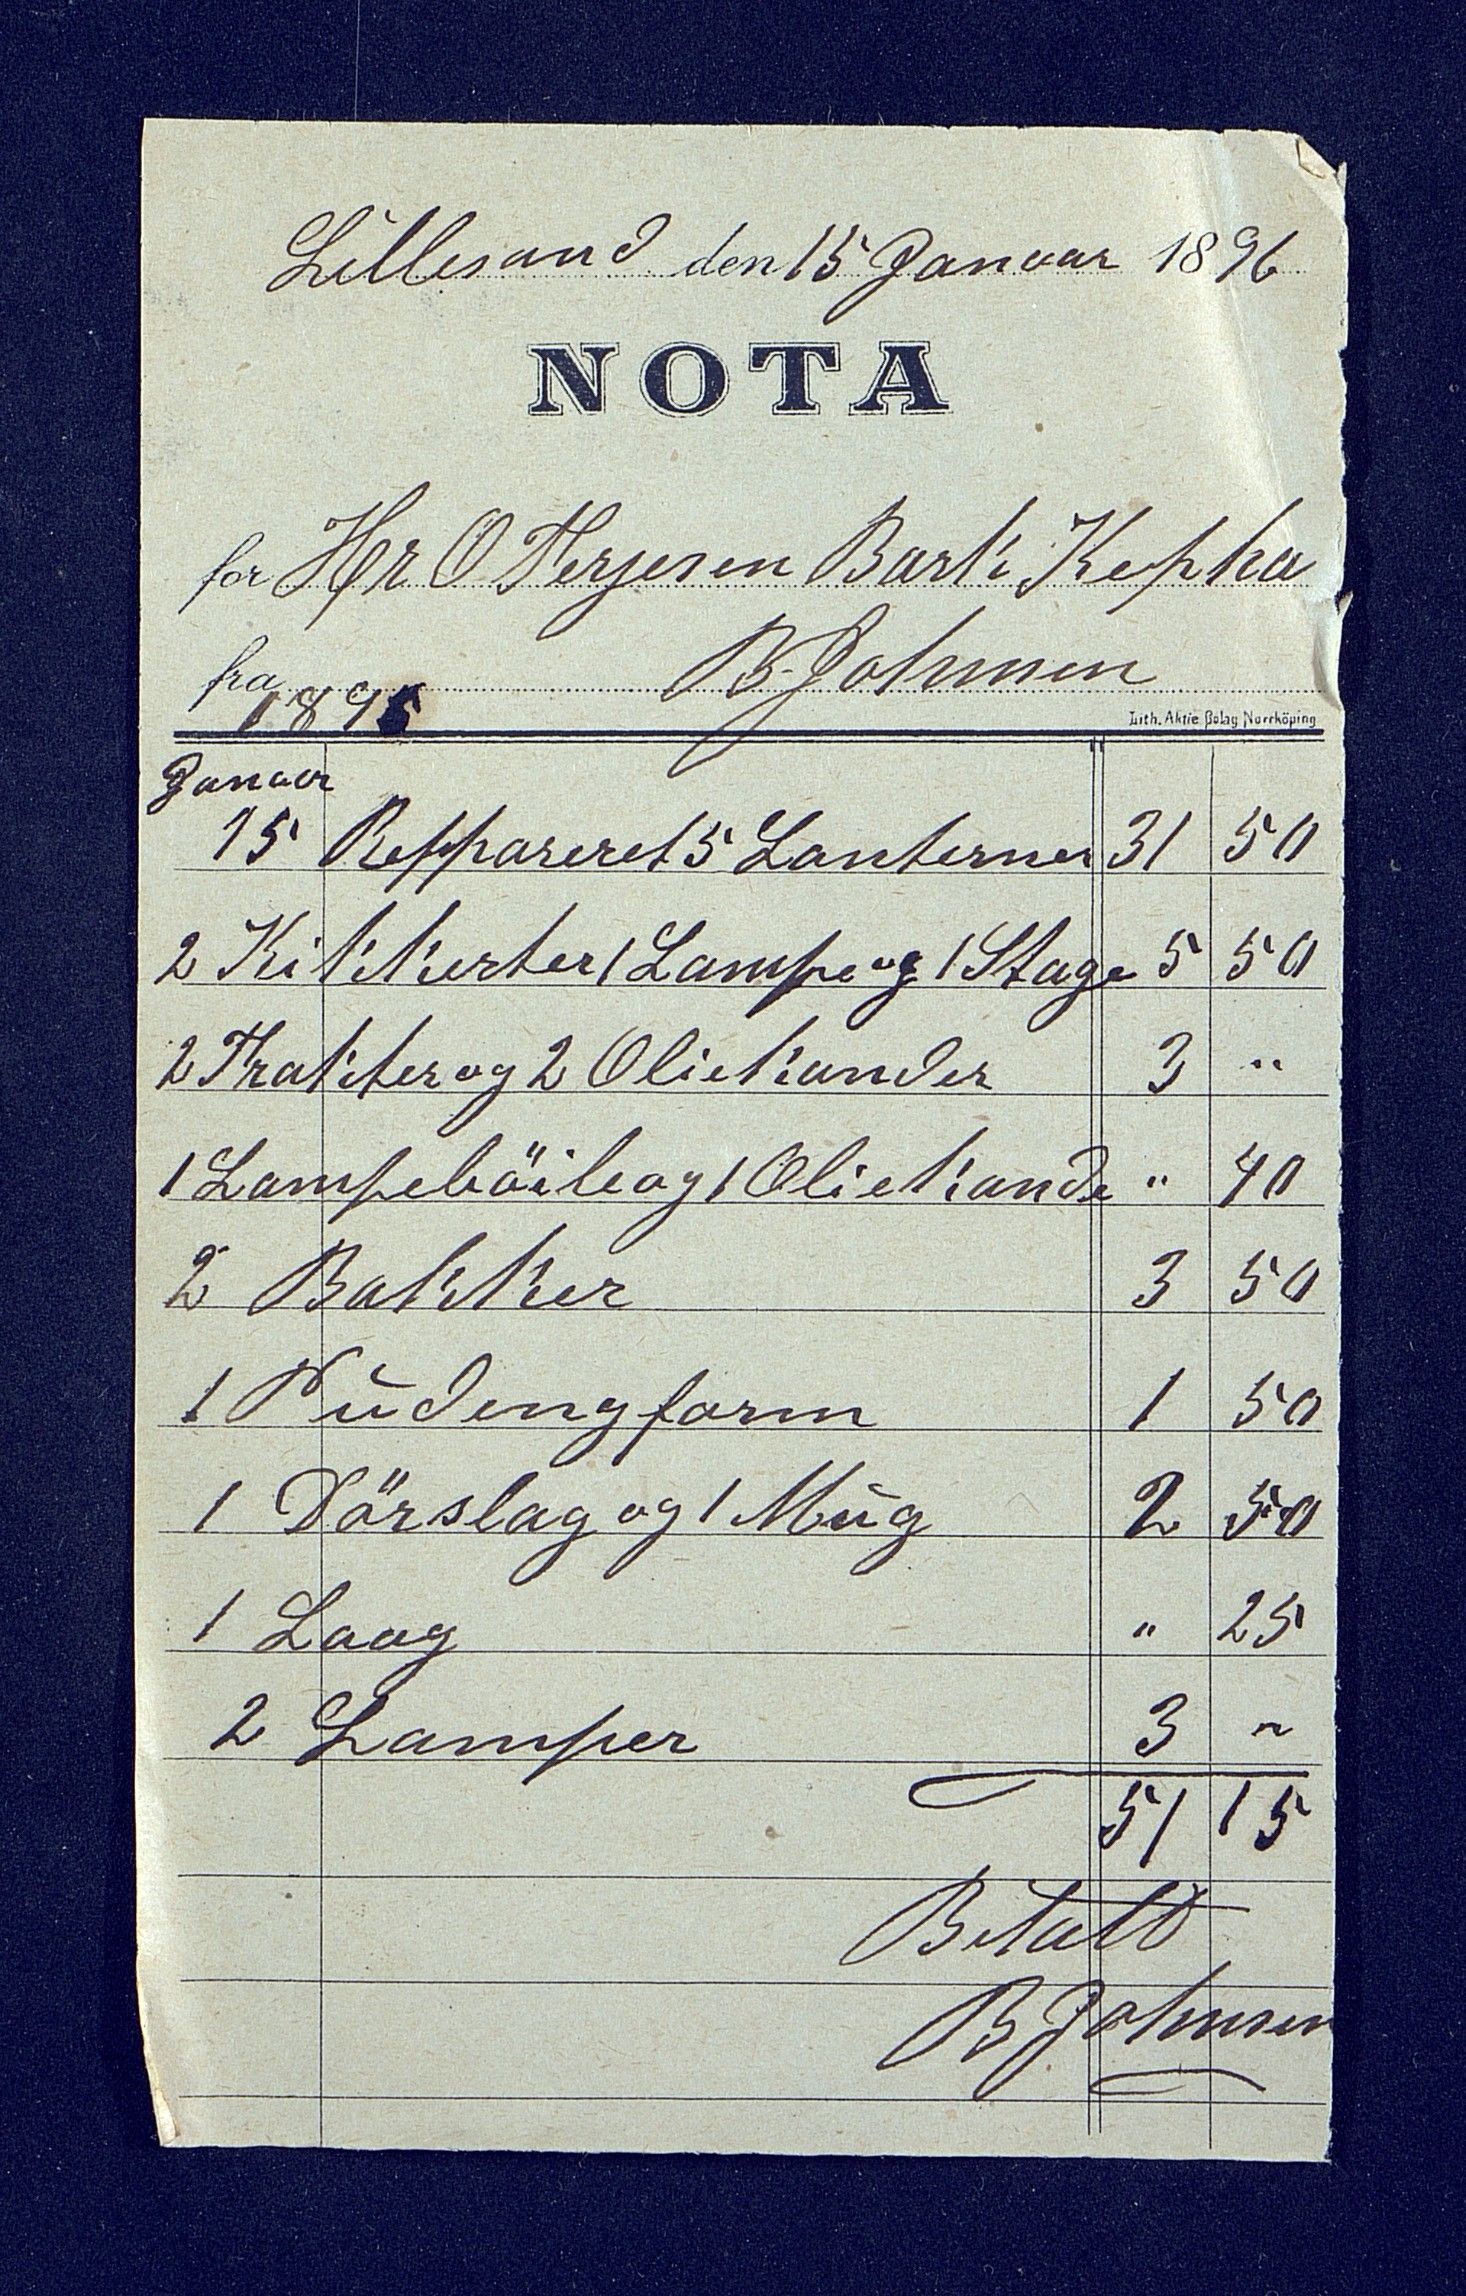 Lillesand den 15 Januar 1896
NOTA
for Hr O Terjesen Bark Kepha
fra B. Johnsen
1895
Lith. Aktie Bolag Norrköping
Januar
15 Reppareret 5 Lanterner 31 50
2 Kikkerter 1 Lampe og 1 Stage 5 50
2 Trakter og 2 Oliekander 3 "
1 Lampeböile og 1 Oliekande " 40
2 Bakker 3 50
1 Pudengform 1 50
1 Dörslag og 1 Mug 2 50
1 Laag " 25
2 Lamper 3 "
51 15
Betalt
B Johnsen